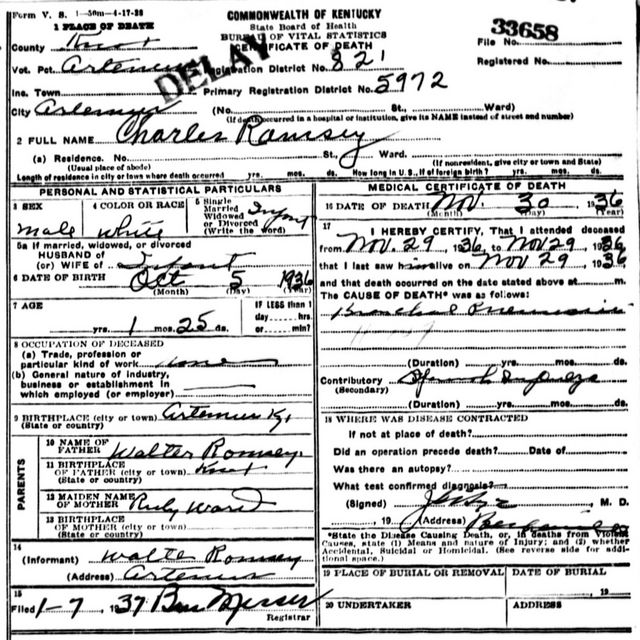 Form V. S. 1-50m-4-17-28
COMMONWEALTH OF KENTUCKY
State Board of Health
BUREAU OF VITAL STATISTICS
CERTIFICATE OF DEATH
DELAY
File No. 33658
Registered No.
1 PLACE OF DEATH
County Knox
Vot. Pct. Artemus Registration District No. 821
Inc. Town Primary Registration District No. 5972
City Artemus (No. St., Ward)
(If death occurred in a hospital or institution, give its NAME instead of street and number)
2 FULL NAME Charles Ramsey
(a) Residence. No. St., Ward.
(Usual place of abode) (If nonresident, give city or town and State)
Length of residence in city or town where death occurred yrs. mos. ds. How long in U. S., if of foreign birth? yrs. mos. ds.
PERSONAL AND STATISTICAL PARTICULARS
3 SEX male
4 COLOR OR RACE White
5 Single Married Widowed or Divorced (Write the word) Infant
5a If married, widowed, or divorced
HUSBAND of
(or) WIFE of Infant
6 DATE OF BIRTH Oct 5 1936
(Month) (Day) (Year)
7 AGE
yrs. 1 mos. 25 ds.
IF LESS than 1 day---hrs. or---min?
8 OCCUPATION OF DECEASED
(a) Trade, profession or
particular kind of work none
(b) General nature of industry,
business or establishment in
which employed (or employer)
9 BIRTHPLACE (city or town) Artemus Ky.
(State or country)
PARENTS
10 NAME OF
FATHER Walter Romsey.
11 BIRTHPLACE
OF FATHER (city or town) Knox
(State or country)
12 MAIDEN NAME
OF MOTHER Ruby Ward
13 BIRTHPLACE
OF MOTHER (city or town)
(State or country)
14
(Informant) Walter Romsey
(Address) Artemus
15
Filed 1-7, 1937 Ben Messer
Registrar
MEDICAL CERTIFICATE OF DEATH
16 DATE OF DEATH Nov. 30 1936
(Month) (Day) (Year)
17
I HEREBY CERTIFY, That I attended deceased
from Nov. 29 1936 to Nov 29 1936
that I last saw him alive on Nov 29 1936
and that death occurred on the date stated above at m.
The CAUSE OF DEATH* was as follows:
Bronchial Pneumonia
(Duration) yrs. mos. ds.
Contributory
(Secondary)
(Duration) yrs. mos. ds.
18 WHERE WAS DISEASE CONTRACTED
If not at place of death?
Did an operation precede death? Date of
Was there an autopsy?
What test confirmed diagnosis?
(Signed) M. D.
, 19 (Address)
*State the Disease Causing Death, or, in deaths from Violent
Causes, state (1) Means and nature of Injury; and (2) whether
Accidental, Suicidal or Homicidal. (See reverse side for addi-
tional space.)
19 PLACE OF BURIAL OR REMOVAL DATE OF BURIAL
, 19
20 UNDERTAKER ADDRESS